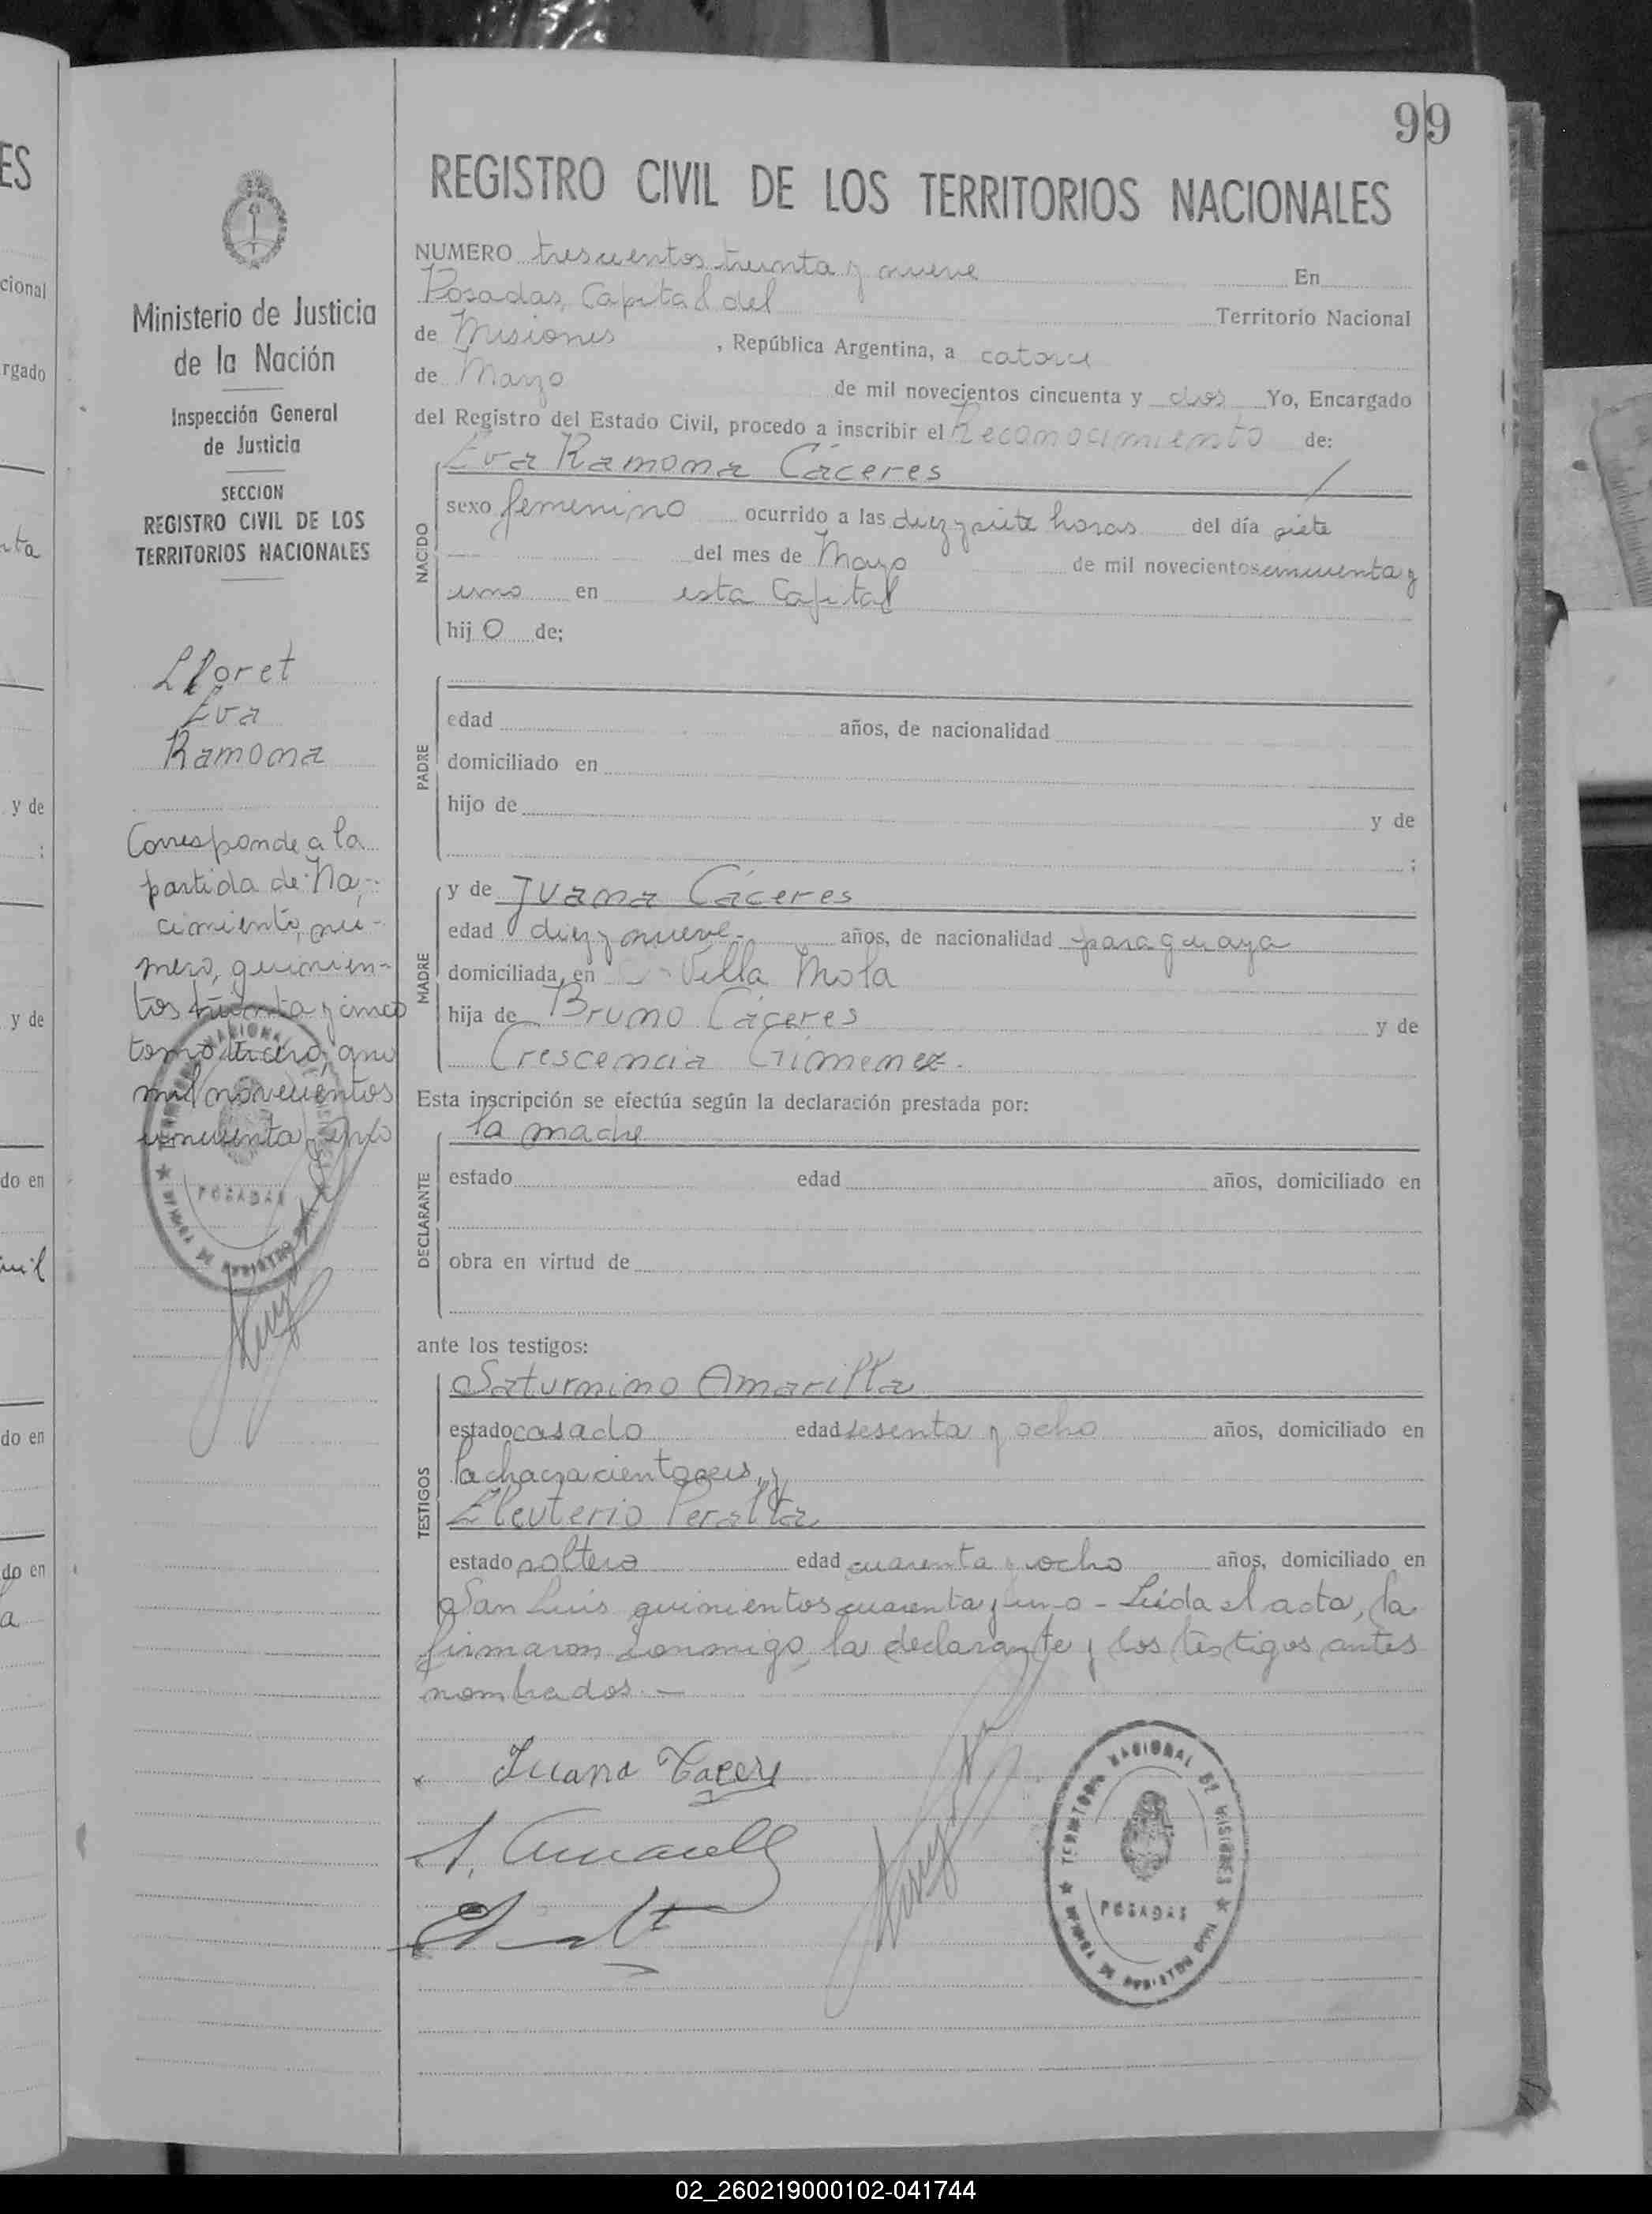 99
REGISTRO CIVIL DE LOS TERRITORIOS NACIONALES
NUMERO trescientos treinta y nueve En
Posadas, Capital del Territorio Nacional
de Misiones, República Argentina, a catorce
de Marzo de mil novecientos cincuenta y dos Yo, Encargado
del Registro del Estado Civil, procedo a inscribir el Reconocimiento de:
NACIDO
Eva Ramona Cáceres
sexo femenino ocurrido a las diez y siete horas del día siete
del mes de Mayo de mil novecientos cincuenta y
uno en esta Capital
hij o de;
PADRE
edad años, de nacionalidad
domiciliado en
hijo de y de
;
MADRE
y de Juana Cáceres
edad diez y nueve años, de nacionalidad paraguaya
domiciliada en Villa Mola
hija de Bruno Cáceres y de
Crescencia Gimenez.
Esta inscripción se efectúa según la declaración prestada por:
DECLARANTE
la madre
estado edad años, domiciliado en
obra en virtud de
ante los testigos:
TESTIGOS
Saturnino Amarilla
estado casado edad sesenta y ocho años, domiciliado en
la chacra ciento seis, y
Eleuterio Peralta
estado soltero edad cuarenta y ocho años, domiciliado en
San Luis quinientos cuarenta y uno - Leída el acta, la
firmaron conmigo, la declarante y los testigos antes
nombrados.-
Juana Caceres
TERRITORIO NACIONAL DE MISIONES
POSADAS
Ministerio de Justicia
de la Nación
Inspección General
de Justicia
SECCION
REGISTRO CIVIL DE LOS
TERRITORIOS NACIONALES
Lloret
Eva
Ramona
Corresponde a la
partida de Na-
cimiento, nú-
mero, quinien-
tos treinta y cinco
tomo tercero, año
mil novecientos
cincuenta y uno
POSADAS
ES
cional
rgado
y de
:
y de
do en
mil
do en
do en
a
02_260219000102-041744